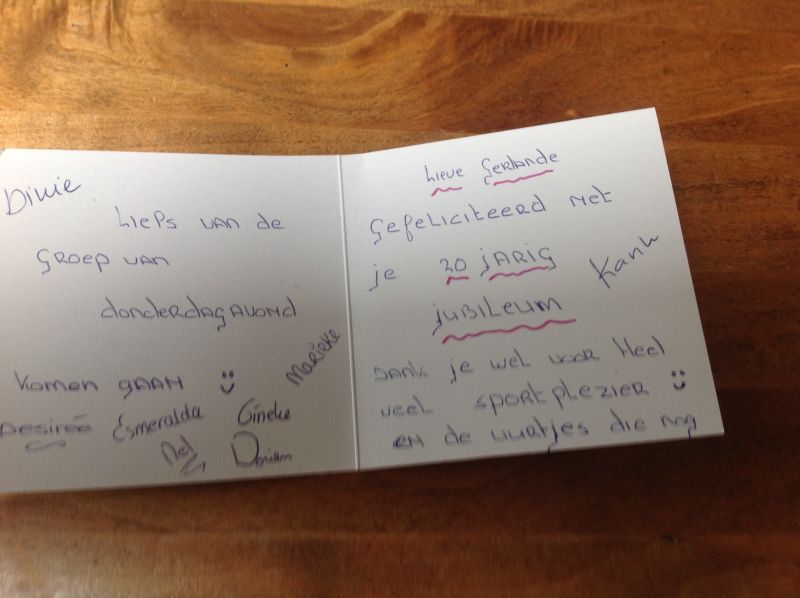 Dinie
Liefs van de
Groep van
donderdagavond
komen gaan
Marieke
Desirée Esmeralda Gineke
Nel Doriem
Lieve Gerlande
Gefeliciteerd met
je 20 jarig
jubileum
Dank je wel voor heel
veel sportplezier
en de uurtjes die nog